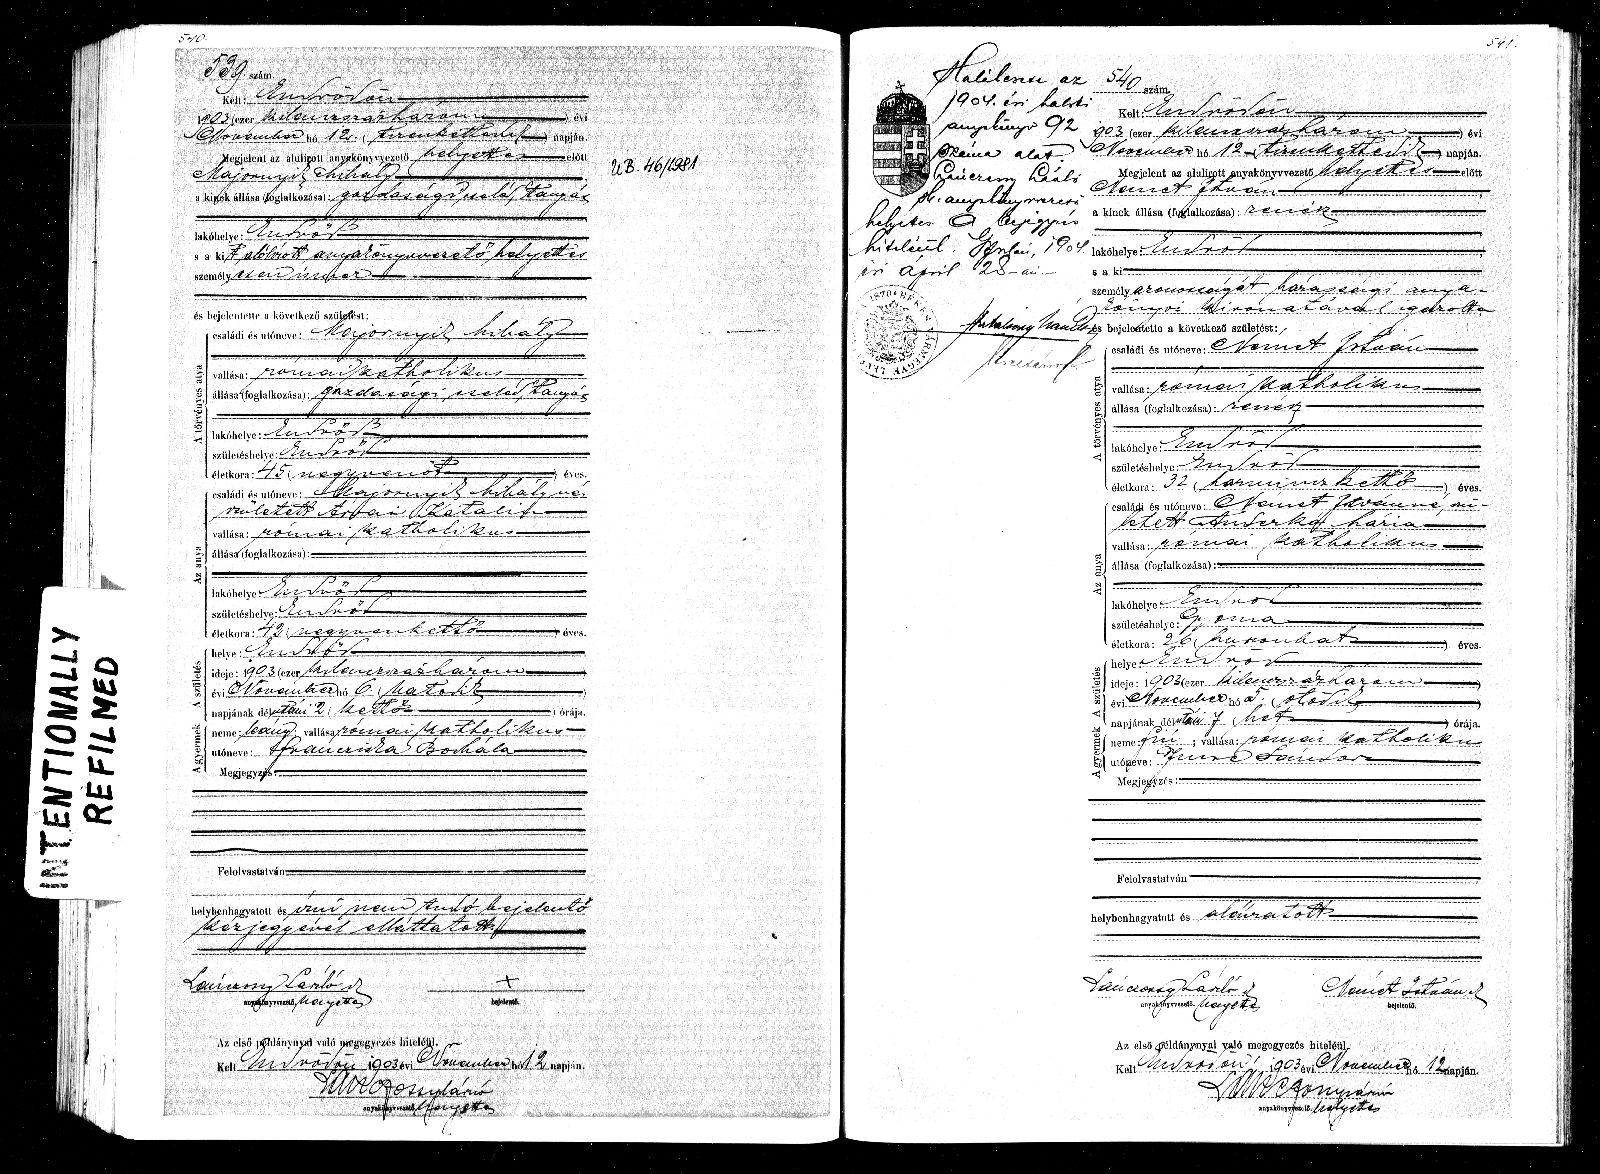 540.
539 szám.
Kelt: Endrődön
1903 (ezer kilencszázhárom) évi
November hó 12. (tizenkettedik) napján.
Megjelent az alulirott anyakönyvvezető helyettes előtt
Majornyik Mihály
a kinek állása (foglalkozása): gazdasági cseléd, tanyás
lakóhelye: Endrőd
s a ki t alólirott anyakönyvvezető helyettes
személyesen ismer
és bejelentette a következő születést:
A törvényes atya
családi és utóneve: Majornyik Mihály
vallása: római katholikus
állása (foglalkozása): gazdasági cseléd, tanyás
lakóhelye: Endrőd
születéshelye: Endrőd
életkora: 45 (negyvenöt) éves.
Az anya
családi és utóneve: Majornyik Mihályné
született Arvai Katalin
vallása: római katholikus
állása (foglalkozása):
lakóhelye: Endrőd
születéshelye: Endrőd
életkora: 42 (negyvenkettő) éves.
A születés
helye: Endrőd
ideje: 1903 (ezer kilencszázhárom)
évi November hó 6 (hatodik)
napjának délutáni 2 (kettő) órája.
A gyermek
neme: leány; vallása: római katholikus
utóneve: Franciska Borbála
Megjegyzés:
Felolvastatván
helybenhagyatott és irni nem tudó bejelentő
kézjegyével elláttatott
Lánczossy László +
anyakönyvvezető. helyettes bejelentő.
Az első példánynyal való megegyezés hiteléül.
Kelt Endrődön 1903 évi November hó 12 napján.
anyakönyvvezető. helyettes
UB. 46/1981
INTENTIONALLY
REFILMED
541.
Haláleset az
1904. évi halotti
anyakönyv 92
száma alatt.
László
helyettes bejegyzés
hiteléül. 1904.
évi április 28-án
540 szám.
Kelt: Endrődön
1903 (ezer kilencszázhárom) évi
November hó 12 (tizenkettedik) napján.
Megjelent az alulirott anyakönyvvezető helyettes előtt
Német István
a kinek állása (foglalkozása): zenész
lakóhelye: Endrőd
s a ki
személyazonosságát házassági anya-
könyvi kivonatával igazolta
és bejelentette a következő születést:
A törvényes atya
családi és utóneve: Német István
vallása: római katholikus
állása (foglalkozása): zenész
lakóhelye: Endrőd
születéshelye: Endrőd
életkora: 32 (harminczkettő) éves.
Az anya
családi és utóneve: Német Istvánné, szü-
letett Mária
vallása: római katholikus
állása (foglalkozása):
lakóhelye: Endrőd
születéshelye: Gyoma
életkora: 26 (huszonhat) éves.
A születés
helye: Endrőd
ideje: 1903 (ezer kilencszázhárom)
évi November hó 5 (ötödik)
napjának délutáni 7 (hét) órája.
A gyermek
neme: fiú; vallása: római katholikus
utóneve: Imre Sándor
Megjegyzés:
Felolvastatván
helybenhagyatott és aláiratott
Lánczossy László Német István
anyakönyvvezető. helyettes bejelentő.
Az első példánynyal való megegyezés hiteléül.
Kelt Endrődön 1903 évi November hó 12 napján.
anyakönyvvezető. helyettes